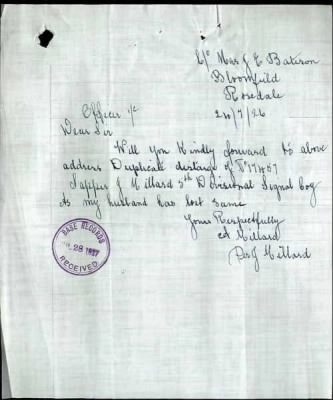 C/o Mrs J E Bateson
Bloomfield
Rosedale
20/7/26
Officer i/c
Dear Sir
Will you Kindly forward to above
address Duplicate discharge of
Sapper J Millard 5th Divisional Signal Coy
As my husband has lost same
Yours Respectfully
Millard
Millard
BASE RECORDS
28 1927
RECEIVED